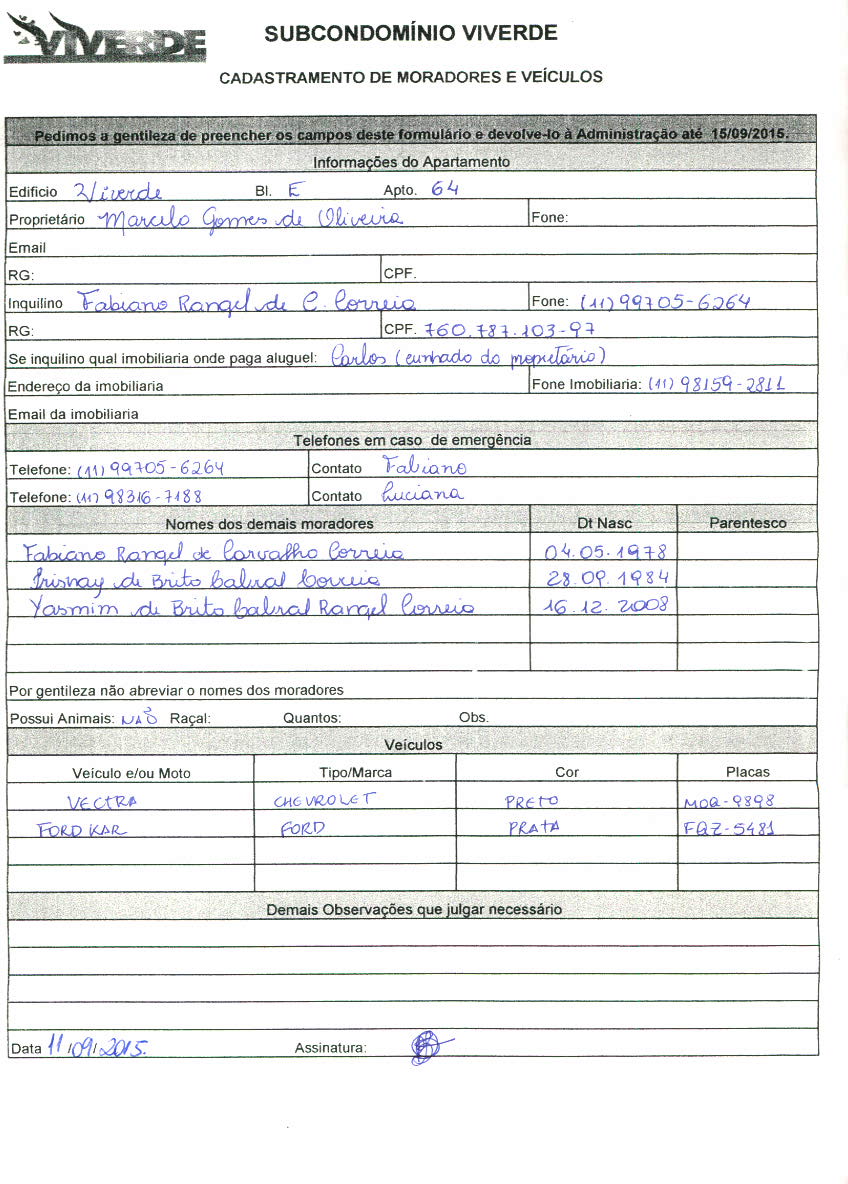 VIVERDE
SUBCONDOMÍNIO VIVERDE
CADASTRAMENTO DE MORADORES E VEÍCULOS
Pedimos a gentileza de preencher os campos deste formulário e devolve-lo à Administração até 15/09/2015.
Informações do Apartamento
Edificio Viverde Bl. E Apto. 64
Proprietário Marcelo Gomes de Oliveira Fone:
Email
RG: CPF.
Inquilino Fabiano Rangel de C. Correia Fone: (11) 99705-6264
RG: CPF. 760.787.103-97
Se inquilino qual imobiliaria onde paga aluguel: Carlos (cunhado do propietário)
Endereço da imobiliaria Fone Imobiliaria: (11) 98159-2811
Email da imobiliaria
Telefones em caso de emergência
Telefone: (11) 99705-6264 Contato Fabiano
Telefone: (11) 98316-7188 Contato Luciana
Nomes dos demais moradores Dt Nasc Parentesco
Fabiano Rangel de Carvalho Correia 04.05.1978
de Brito Cabral Correia 28.09.1984
Yasmim de Brito Cabral Rangel Correia 16.12.2008
Por gentileza não abreviar o nomes dos moradores
Possui Animais: NÃO Raçal: Quantos: Obs.
Veículos
Veículo e/ou Moto Tipo/Marca Cor Placas
VECTRA CHEVROLET PRETO MOQ-9898
FORD KAR FORD PRATA FQZ-5481
Demais Observações que julgar necessário
Data 11/09/2015. Assinatura: